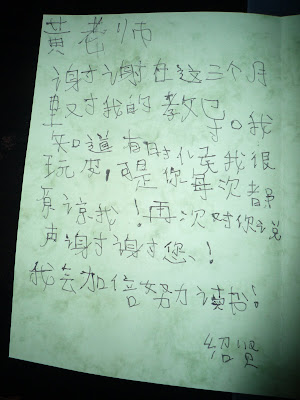 黄老师
谢谢在这三个月
里对我的教导。我
知道有时候我很
玩皮，可是你每次都
原谅我！再次对你说
声谢谢谢谢您！
我会加倍努力读书！
绍贤